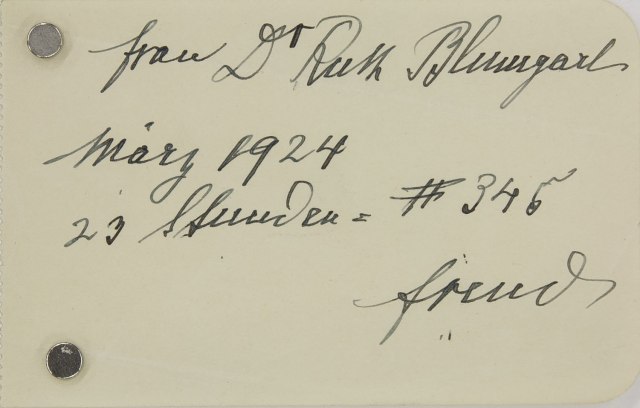 Frau Dr Ruth Blumgart
März 1924
23 Stunden = # 345
Freud